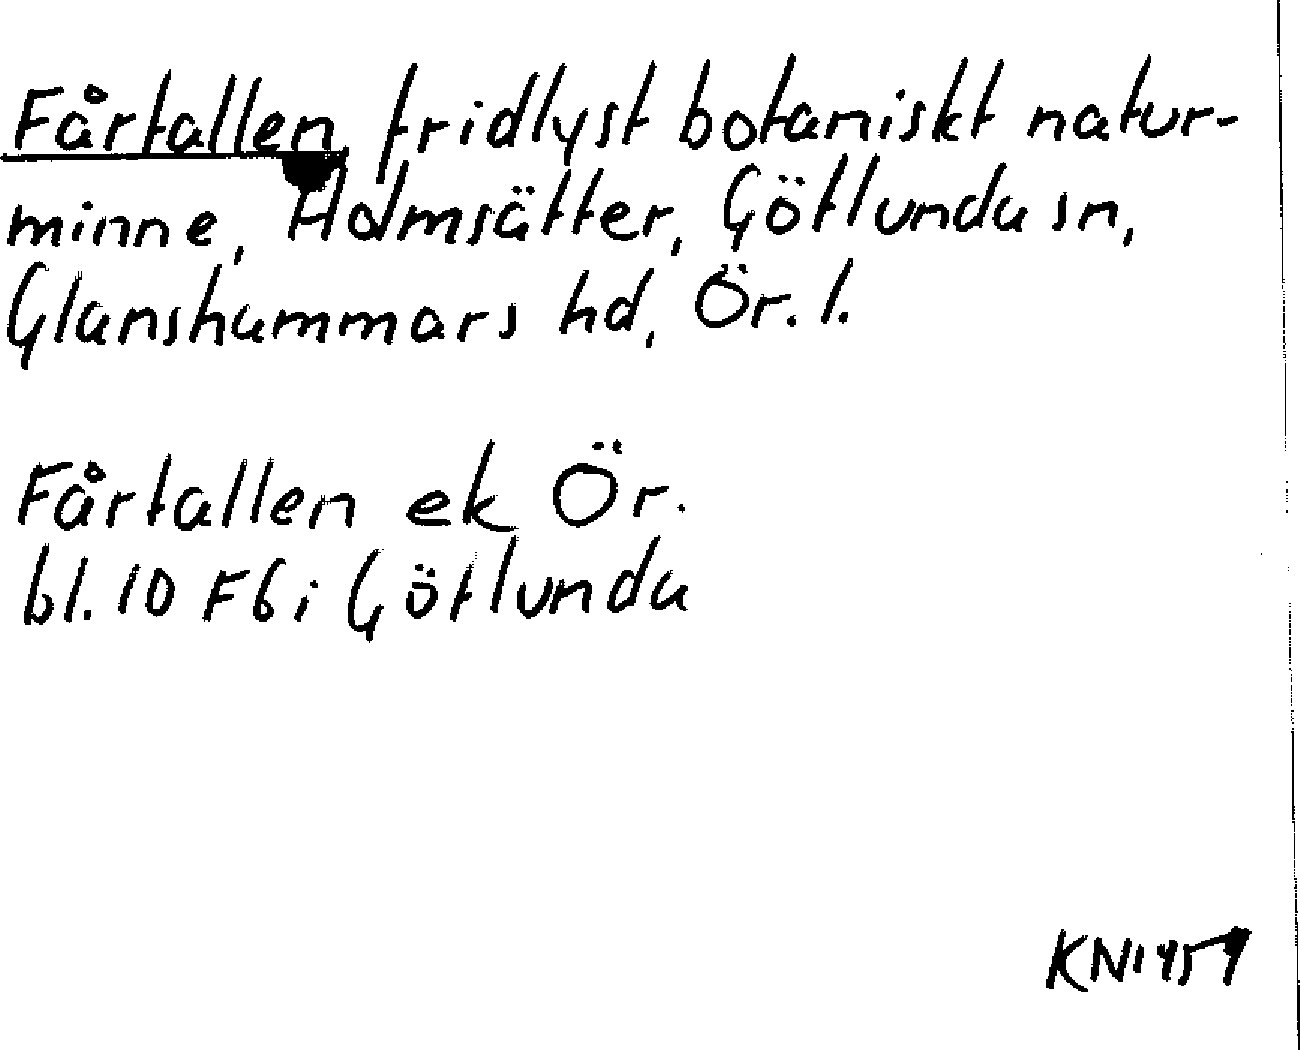 Fårtallen, fridlyst botaniskt natur-
minne, Holmsätter, Götlunda sn,
Glanshammars hd, Ör. l.
Fårtallen ek Ör.
bl. 10 F6 i Götlunda
KN 1959